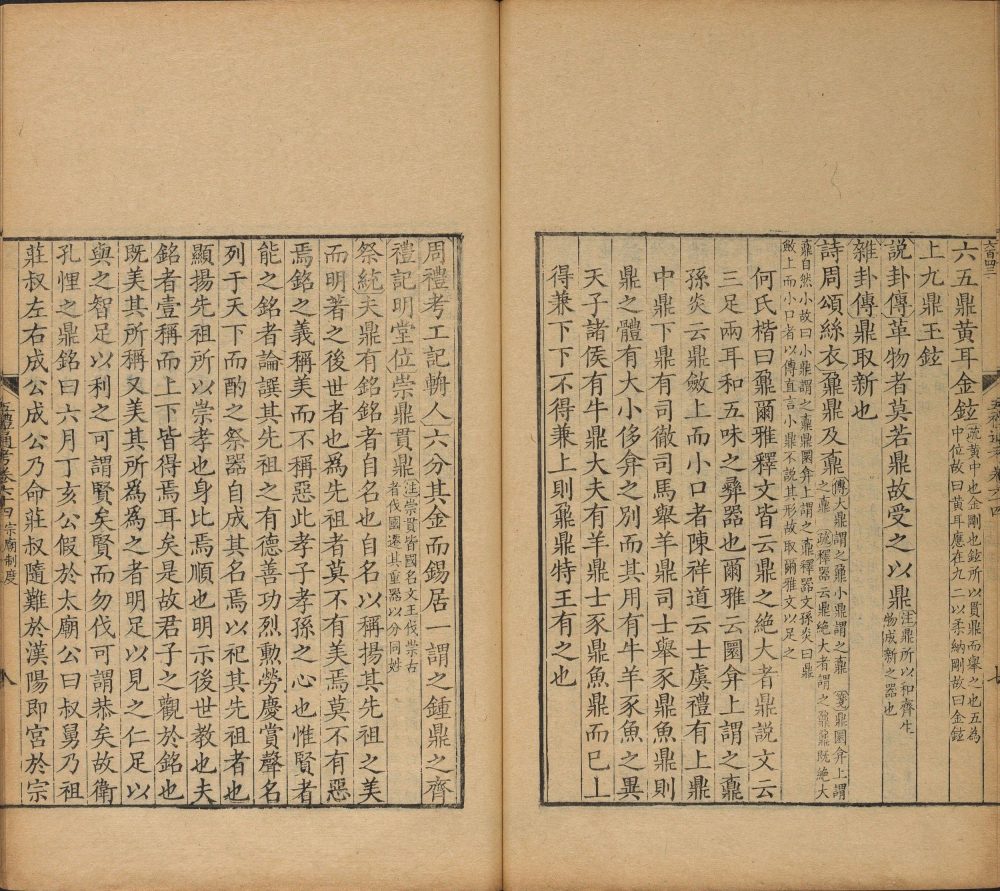 六五鼎黃耳金鉉疏黃中也金剛也鉉所以貫鼎而舉之也五為
中位故曰黃耳應在九二以柔納剛故曰金鉉
上九鼎玉鉉
說卦傳革物者莫若鼎故受之以鼎注鼎所以和齊生
物成新之器也
雜卦傳鼎取新也
詩周頌絲衣鼐鼎及鼒傳大鼎謂之鼐小鼎謂之鼒 箋鼎圜弇上謂
之鼒 疏釋器云鼎絶大者謂之鼐鼐既絶大
鼒自然小故曰小鼎謂之鼒鼎圜弇上謂之鼒釋器文孫炎曰鼎
斂上而小口者以傳直言小鼎不說其形故取爾雅文以足之
何氏楷曰鼐爾雅釋文皆云鼎之絶大者鼎說文云
三足兩耳和五味之彝器也爾雅云圜弇上謂之鼒
孫炎云鼎斂上而小口者陳祥道云士虞禮有上鼎
中鼎下鼎有司徹司馬舉羊鼎司士舉豕鼎魚鼎則
鼎之體有大小侈弇之别而其用有牛羊豕魚之異
天子諸侯有牛鼎大夫有羊鼎士豕鼎魚鼎而已上
得兼下下不得兼上則鼐鼎特王有之也
周禮考工記輈人六分其金而錫居一謂之鍾鼎之齊
禮記明堂位崇鼎貫鼎注崇貫皆國名文王伐崇古
者伐國遷其重器以分同姓
祭統夫鼎有銘銘者自名也自名以稱揚其先祖之美
而明著之後世者也為先祖者莫不有美焉莫不有惡
焉銘之義稱美而不稱惡此孝子孝孫之心也惟賢者
能之銘者論譔其先祖之有德善功烈勲勞慶賞聲名
列于天下而酌之祭器自成其名焉以祀其先祖者也
顯揚先祖所以崇孝也身比焉順也明示後世教也夫
銘者壹稱而上下皆得焉耳矣是故君子之觀於銘也
既美其所稱又美其所為為之者明足以見之仁足以
與之智足以利之可謂賢矣賢而勿伐可謂恭矣故衛
孔悝之鼎銘曰六月丁亥公假於太廟公曰叔舅乃祖
莊叔左右成公成公乃命莊叔隨難於漢陽即宮於宗
五禮通考卷六十四 宗廟制度 八